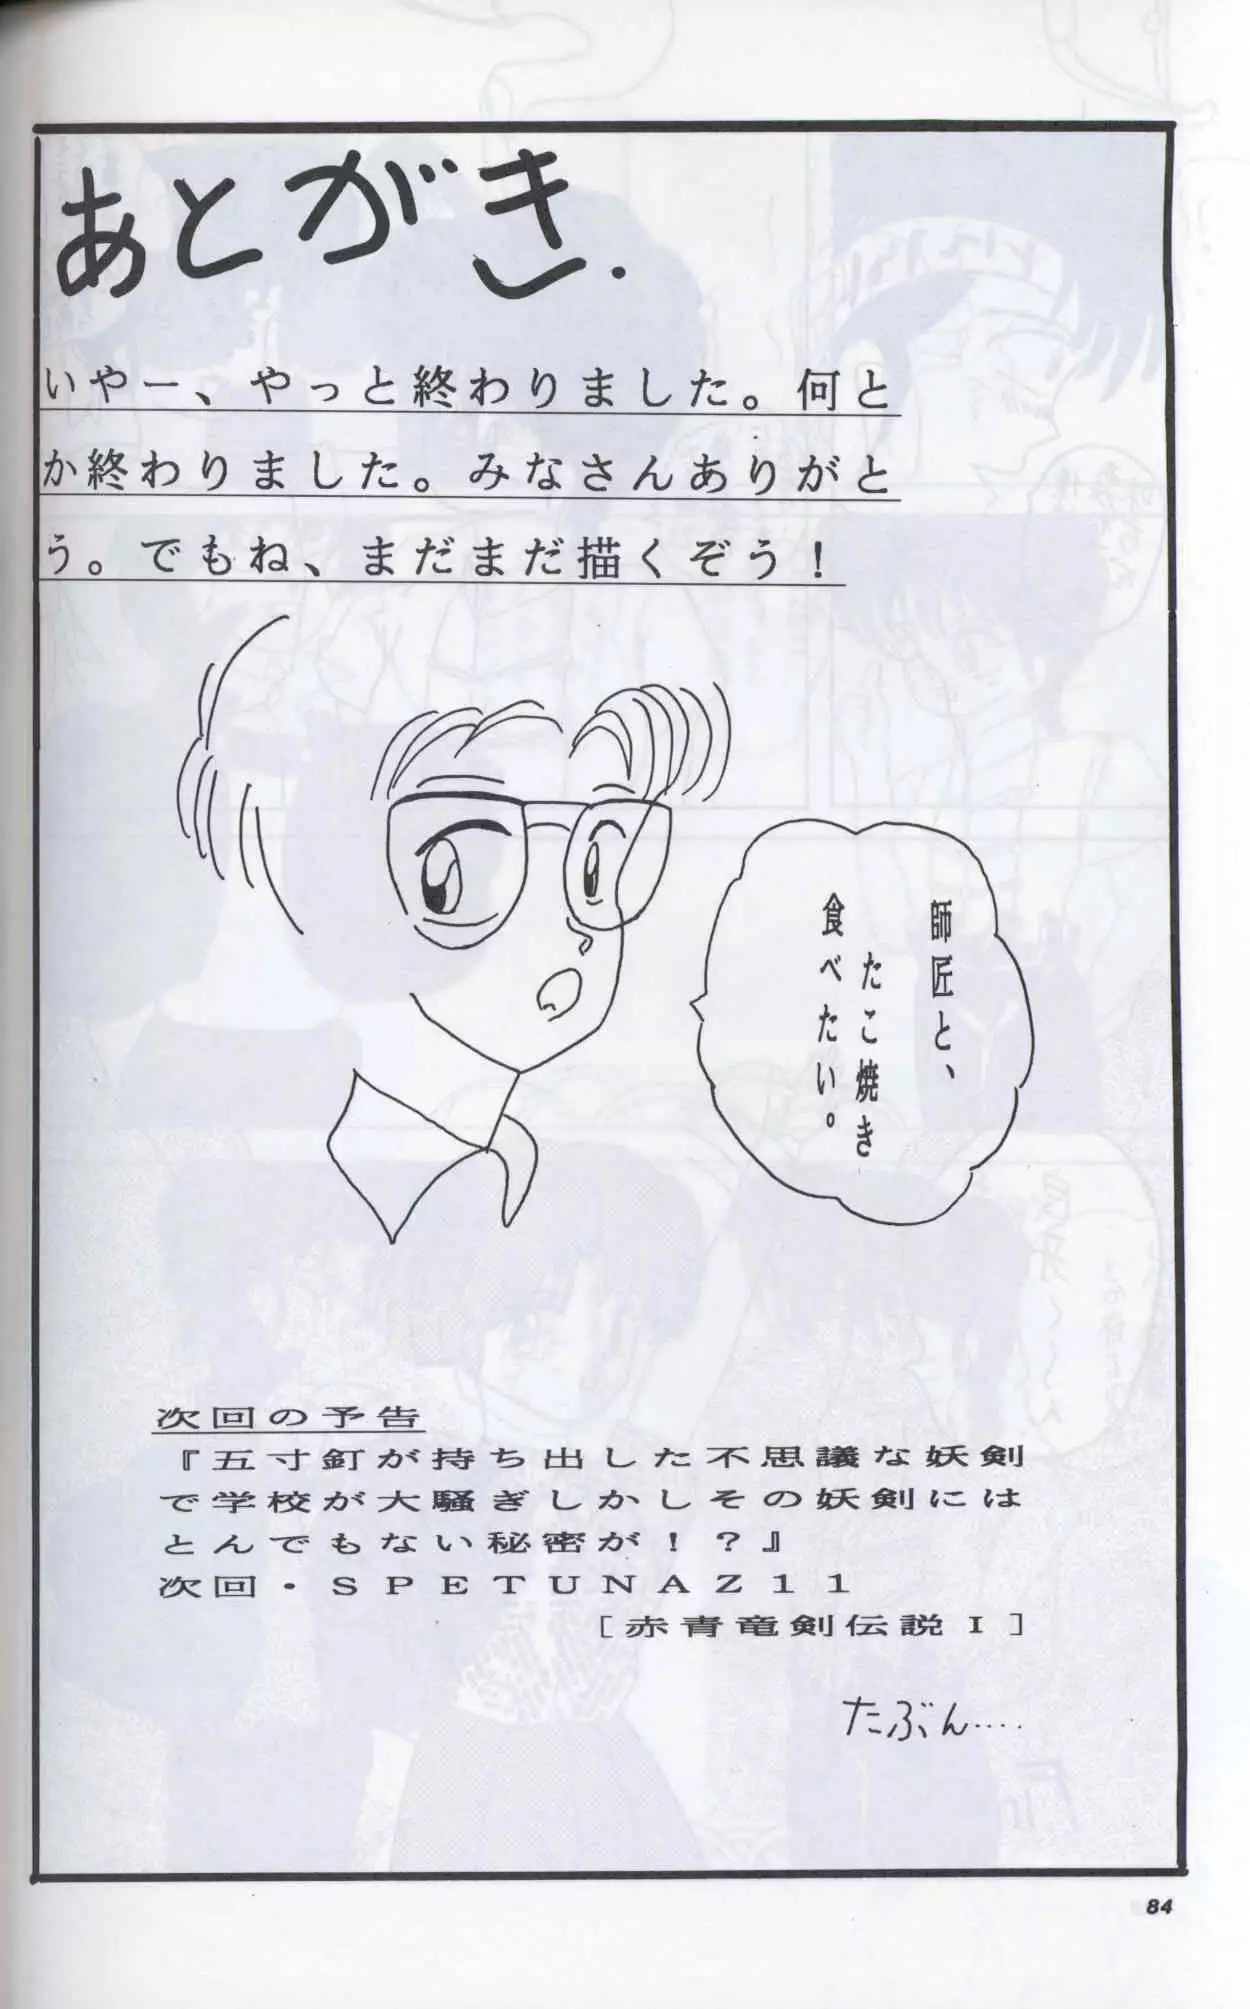 あとがき.
いやー、やっと終わりました。何と
か終わりました。みなさんありがと
う。でもね、まだまだ描くぞう！
師匠と、
たこ焼き
食べたい。
次回の予告
『五寸釘が持ち出した不思議な妖剣
で学校が大騒ぎしかしその妖剣には
とんでもない秘密が！？』
次回・ＳＰＥＴＵＮＡＺ１１
［赤青竜剣伝説Ｉ］
たぶん‥‥
84